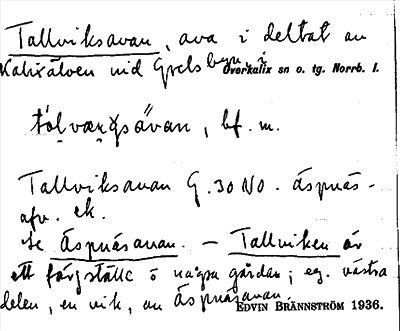 Tallviksavan, ava i deltat av
Kalixälven vid Grelsbyn, i
Överkalix sn o. tg. Norrb. l.
bf. m.
Tallviksavan G. 30 NO. Äspnäs-
afv. ek.
se Äspnäsavan. — Tallviken är
ett färgställe ö några gårdar; eg. västra
delen, en vik, av Äspnäsavan.
EDVIN BRÄNNSTRÖM 1936.